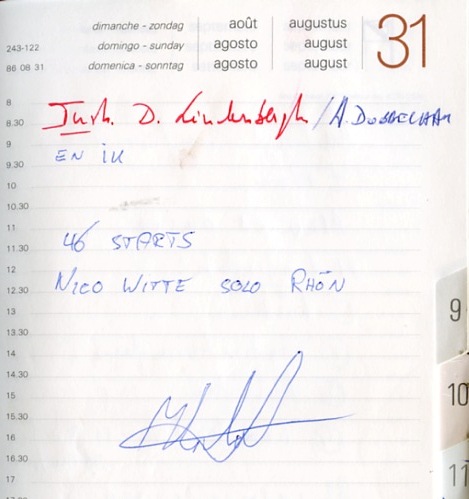 dimanche - zondag août augustus 31
243-122 domingo - sunday agosto august
86 08 31 domenica - sonntag agosto august
8
8.30 Instr. D. Lindenbergh / A. DOBBELHAM
9 EN IK
9.30
10
10.30
11 46 STARTS
11.30
12 NICO WITTE SOLO RHÖN
12.30
13
13.30
14
14.30
15
15.30
16
16.30
17
9
10
11